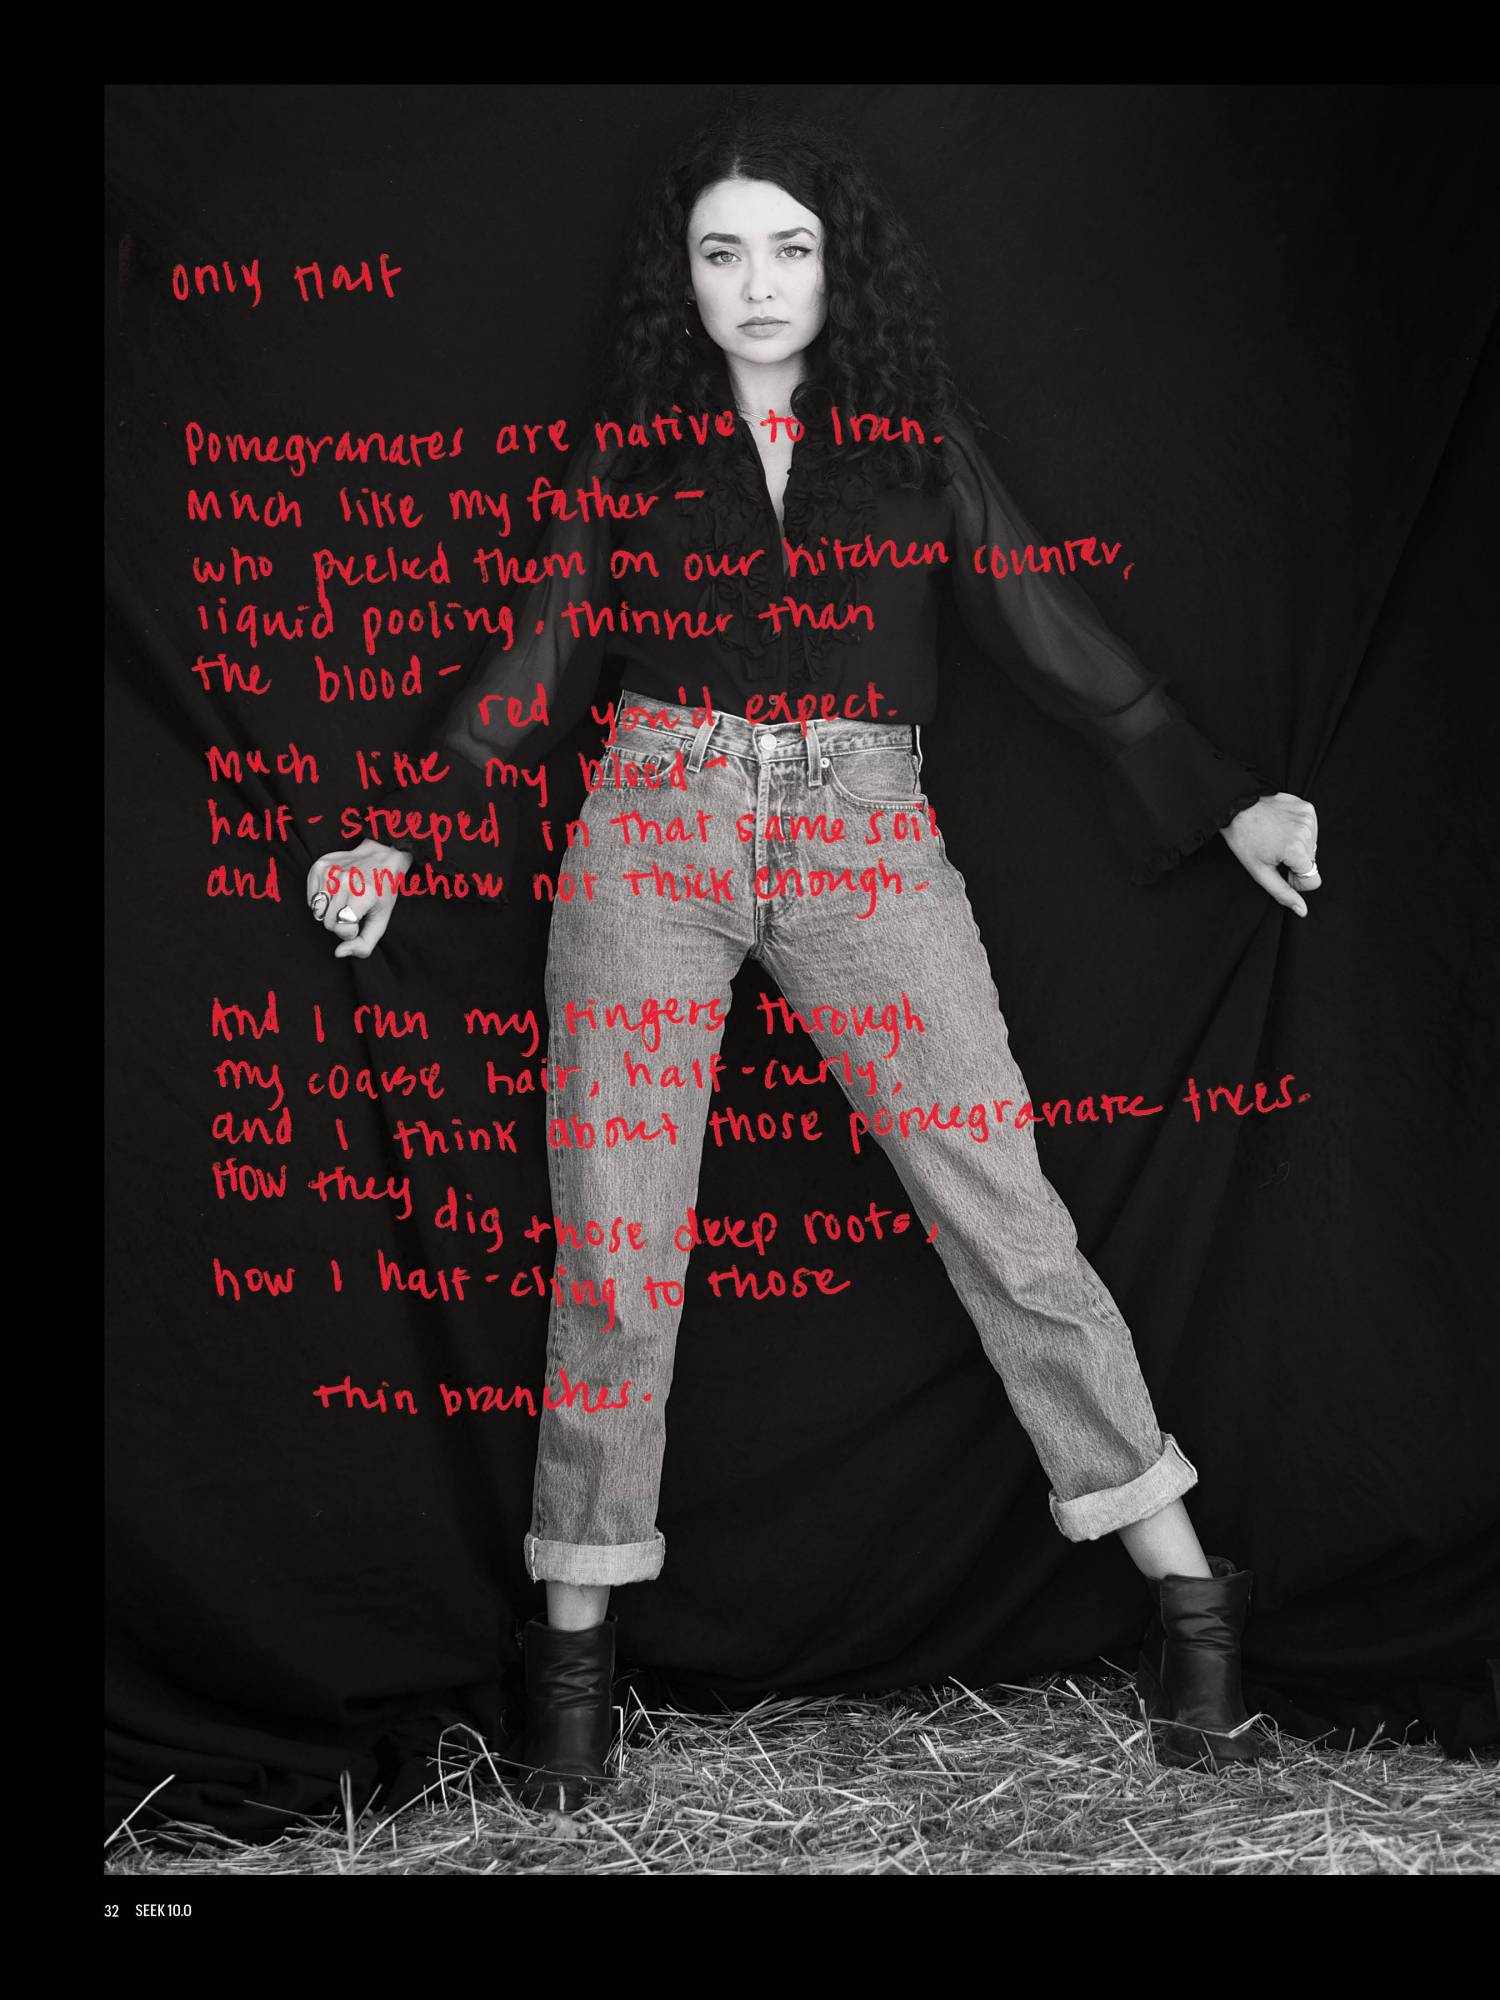 only Half
Pomegranates are native to Iran.
Much like my father -
who peeled them on our kitchen counter,
liquid pooling, thinner than
the blood -
red you'd expect.
Much like my blood -
half-steeped in that same soil
and somehow not thick enough.
And I run my fingers through
my coarse hair, half-curly,
and I think about those pomegranate trees.
How they
dig those deep roots,
how I half-cling to those
thin branches.
32 SEEK 10.0